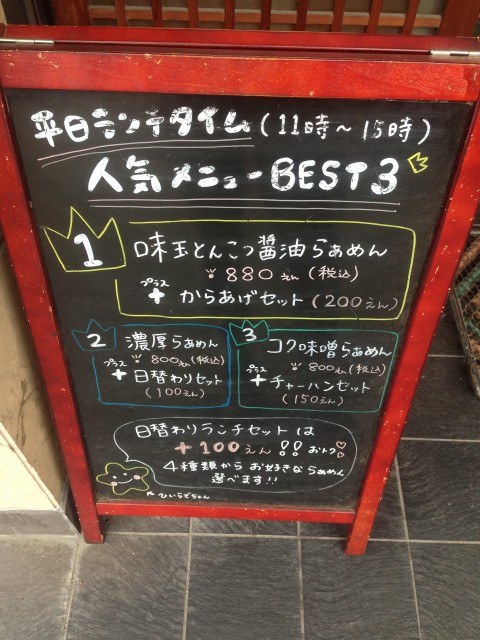 平日ランチタイム(11時〜15時)
人気メニューBEST3
1
味玉とんこつ醤油らぁめん
880えん(税込)
プラス
+からあげセット(200えん)
2
濃厚らぁめん
800えん(税込)
プラス
+日替わりセット
(100えん)
3
コク味噌らぁめん
800えん(税込)
プラス
+チャーハンセット
(150えん)
日替わりランチセットは
+100えん!!おトク♡♡
4種類からお好きならぁめん
選べます!!